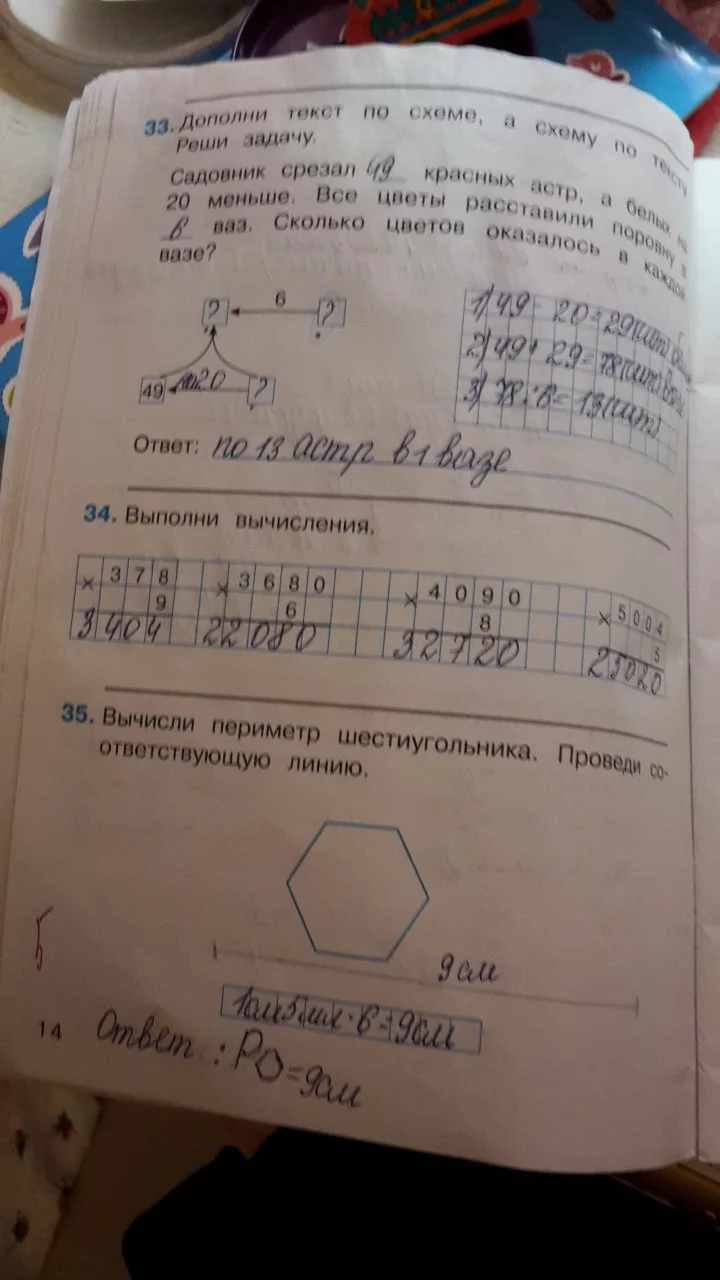 33. Дополни текст по схеме, а схему по тексту
Реши задачу.
Садовник срезал 49 красных астр, а белых на
20 меньше. Все цветы расставили поровну в
6 ваз. Сколько цветов оказалось в каждой
вазе?
? 6 ?
49 на 20 ?
1) 49 - 20 = 29(шт)
2) 49 + 29 = 78(шт) всего
3) 78 : 6 = 13(шт)
Ответ: по 13 астр в 1 вазе
34. Выполни вычисления.
× 378 × 3680 × 4090 × 5004
9 6 8 5
3404 22080 32720 25020
35. Вычисли периметр шестиугольника. Проведи со-
ответствующую линию.
9 см
1см 5мм · 6 = 9см
Ответ : P = 9см
14
5